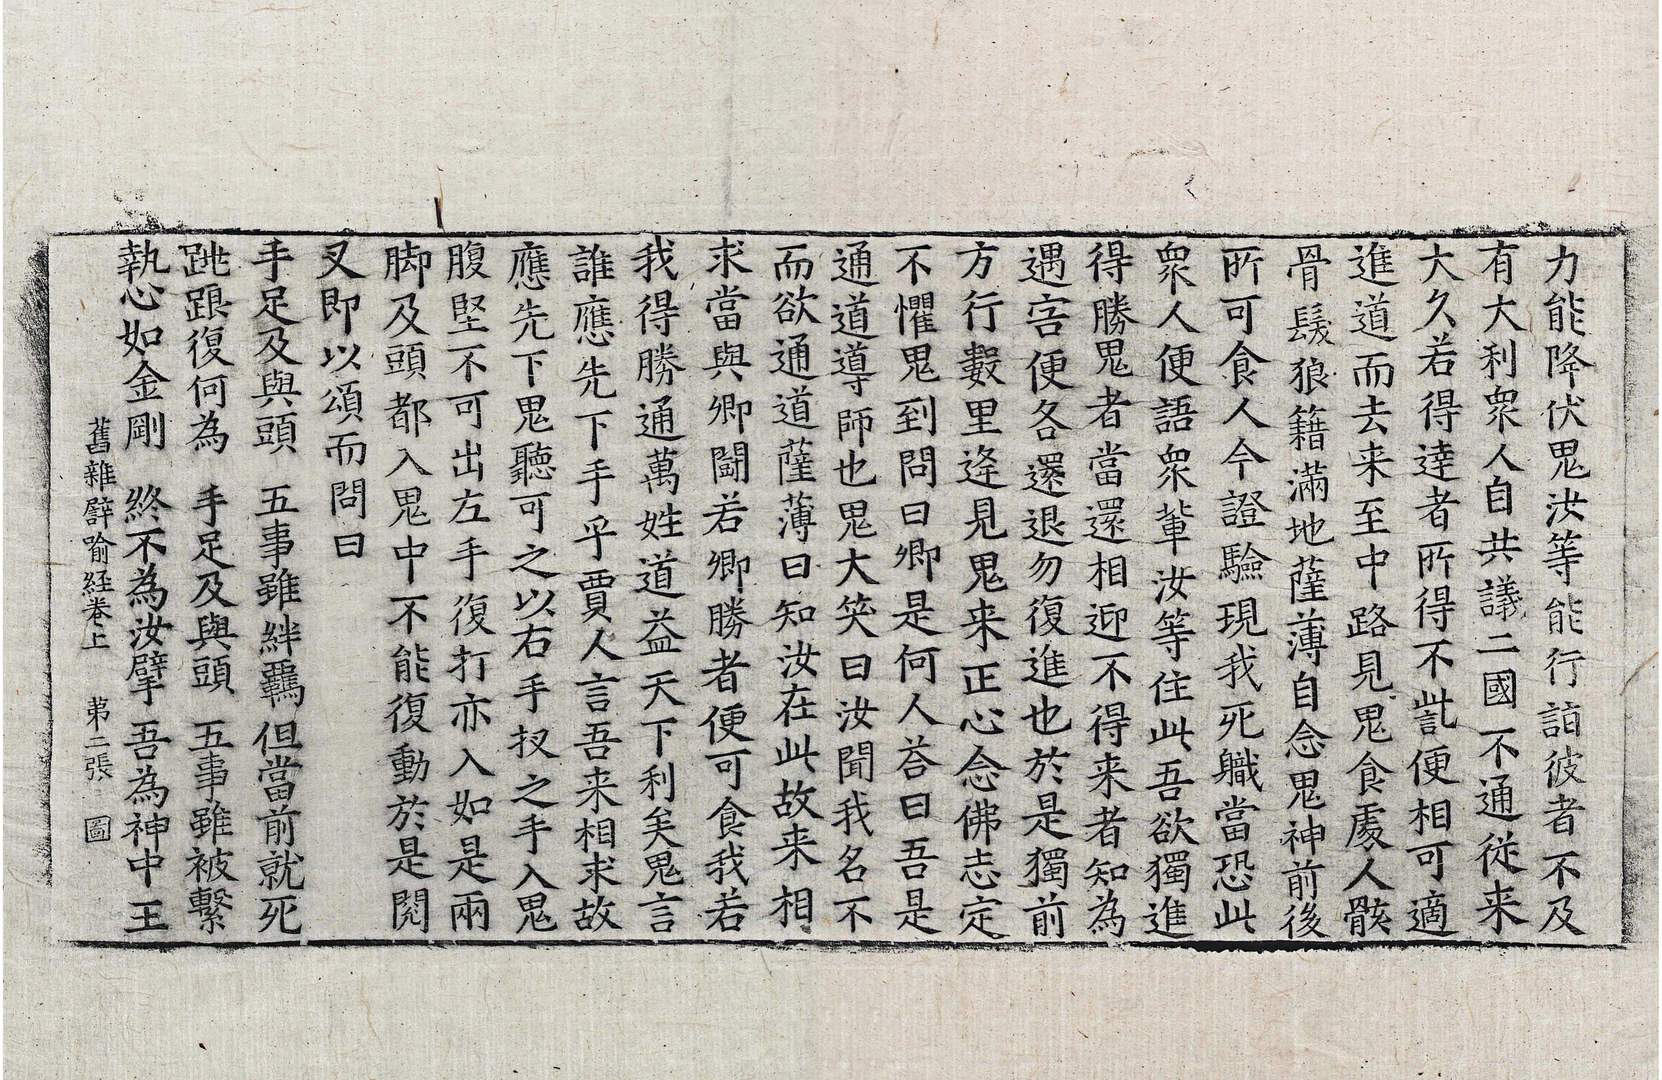 力能降伏鬼汝等能行詣彼者不及
有大利衆人自共議二國不通従来
大久若得達者所得不訾便相可適
進道而去来至中路見鬼食處人骸
骨髮狼籍滿地薩薄自念鬼神前後
所可食人今證驗現我死職當恐此
衆人便語衆輩汝等住此吾欲獨進
得勝鬼者當還相迎不得来者知為
遇害便各還退勿復進也於是獨前
方行數里逢見鬼来正心念佛志定
不懼鬼到問曰卿是何人荅曰吾是
通道導師也鬼大笑曰汝聞我名不
而欲通道薩薄曰知汝在此故来相
求當與卿鬪若卿勝者便可食我若
我得勝通萬姓道益天下利矣鬼言
誰應先下手乎賈人言吾来相求故
應先下鬼聽可之以右手扠之手入鬼
腹堅不可出左手復打亦入如是兩
脚及頭都入鬼中不能復動於是閱
叉即以頌而問曰
手足及與頭　五事雖絆羈　但當前就死
跳踉復何為　手足及與頭　五事雖被繫
執心如金剛　終不為汝擘　吾為神中王
舊雜譬喻經卷上　第二張　圖